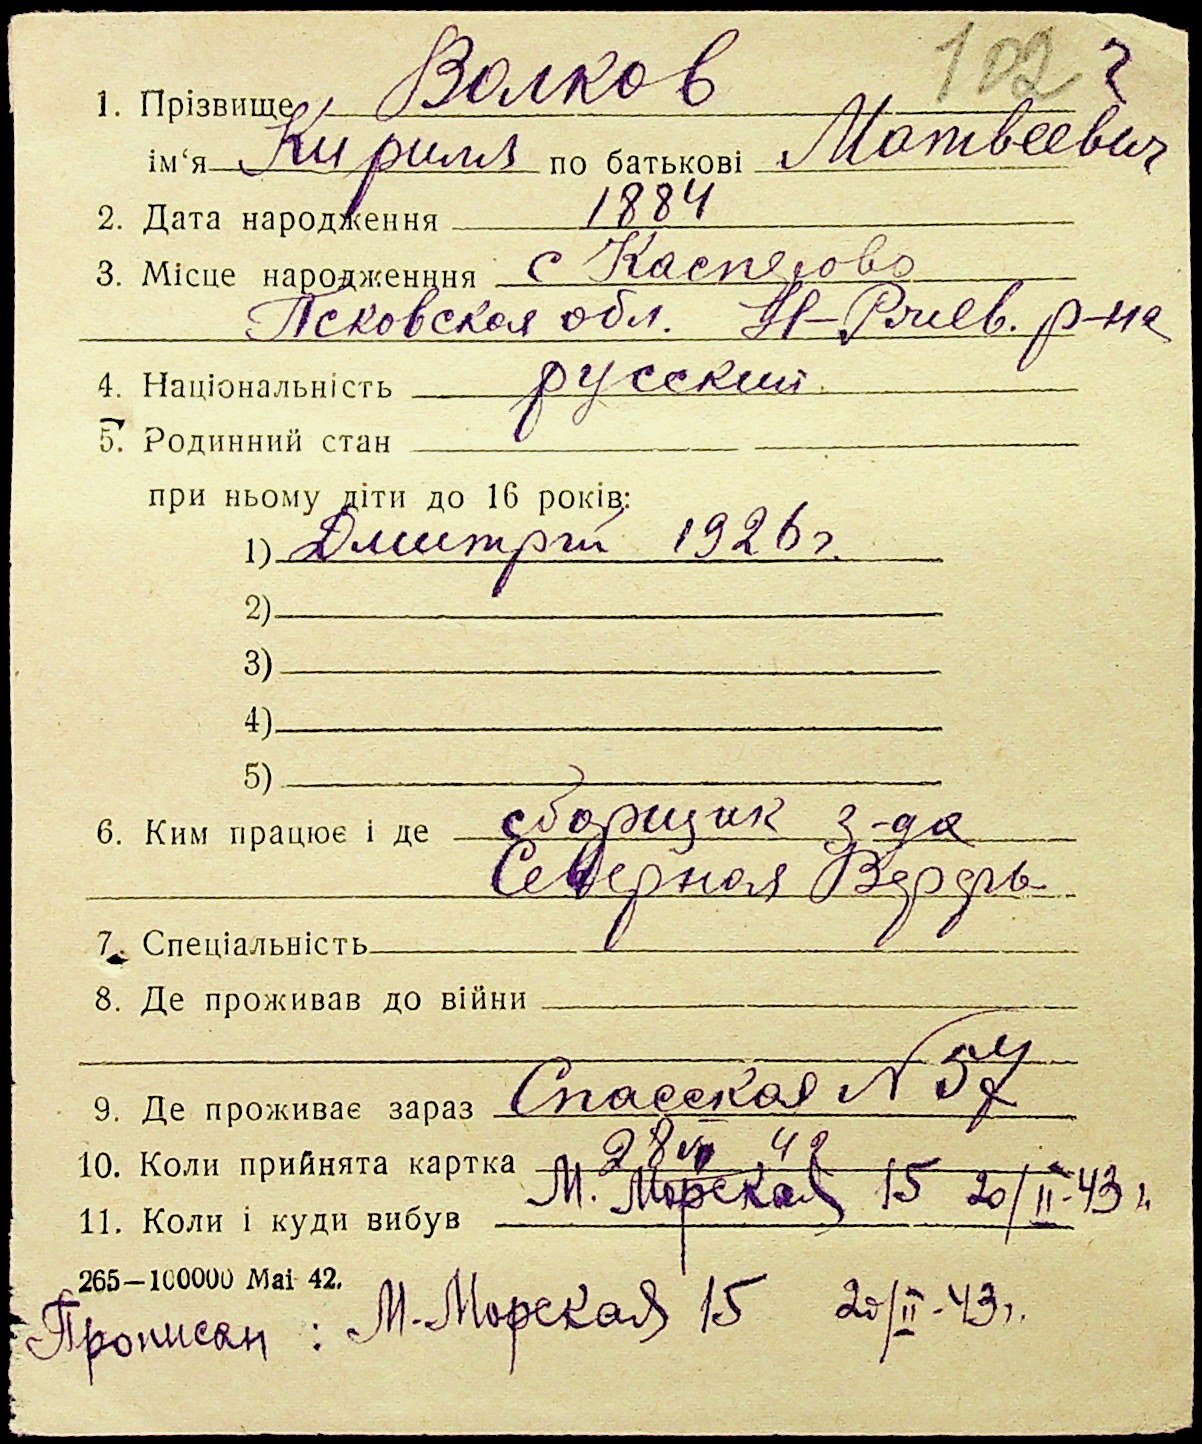 102 2
1. Прізвище Волков
ім‘я Кирилл по батькові Матвеевич
2. Дата народження 1884
3. Місце народженння с
Псковская обл. р-на
4. Національність русский
5. Родинний стан
при ньому діти до 16 років:
1) Дмитрий 1926 г.
2)
3)
4)
5)
6. Ким працює і де сборщик з-да
Северная Верфь
7. Спеціальність
8. Де проживав до війни
9. Де проживає зараз Спасская N 57
10. Коли прийнята картка 28 42
М. Морская 15 20/II-43 г.
11. Коли і куди вибув
265—100000 Mai 42.
Прописан : М. Морская 15 20/II-43 г.